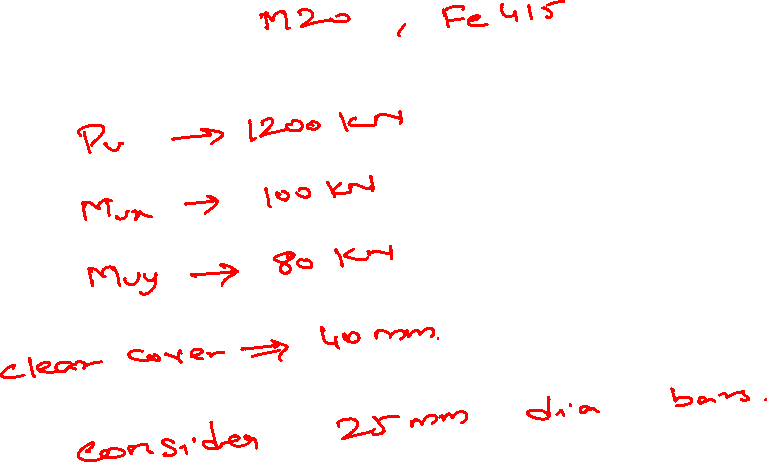 M20 , Fe 415
Pu → 1200 KN
Mux → 100 KN
Muy → 80 KN
clear cover → 40 mm.
consider 25 mm dia bars.